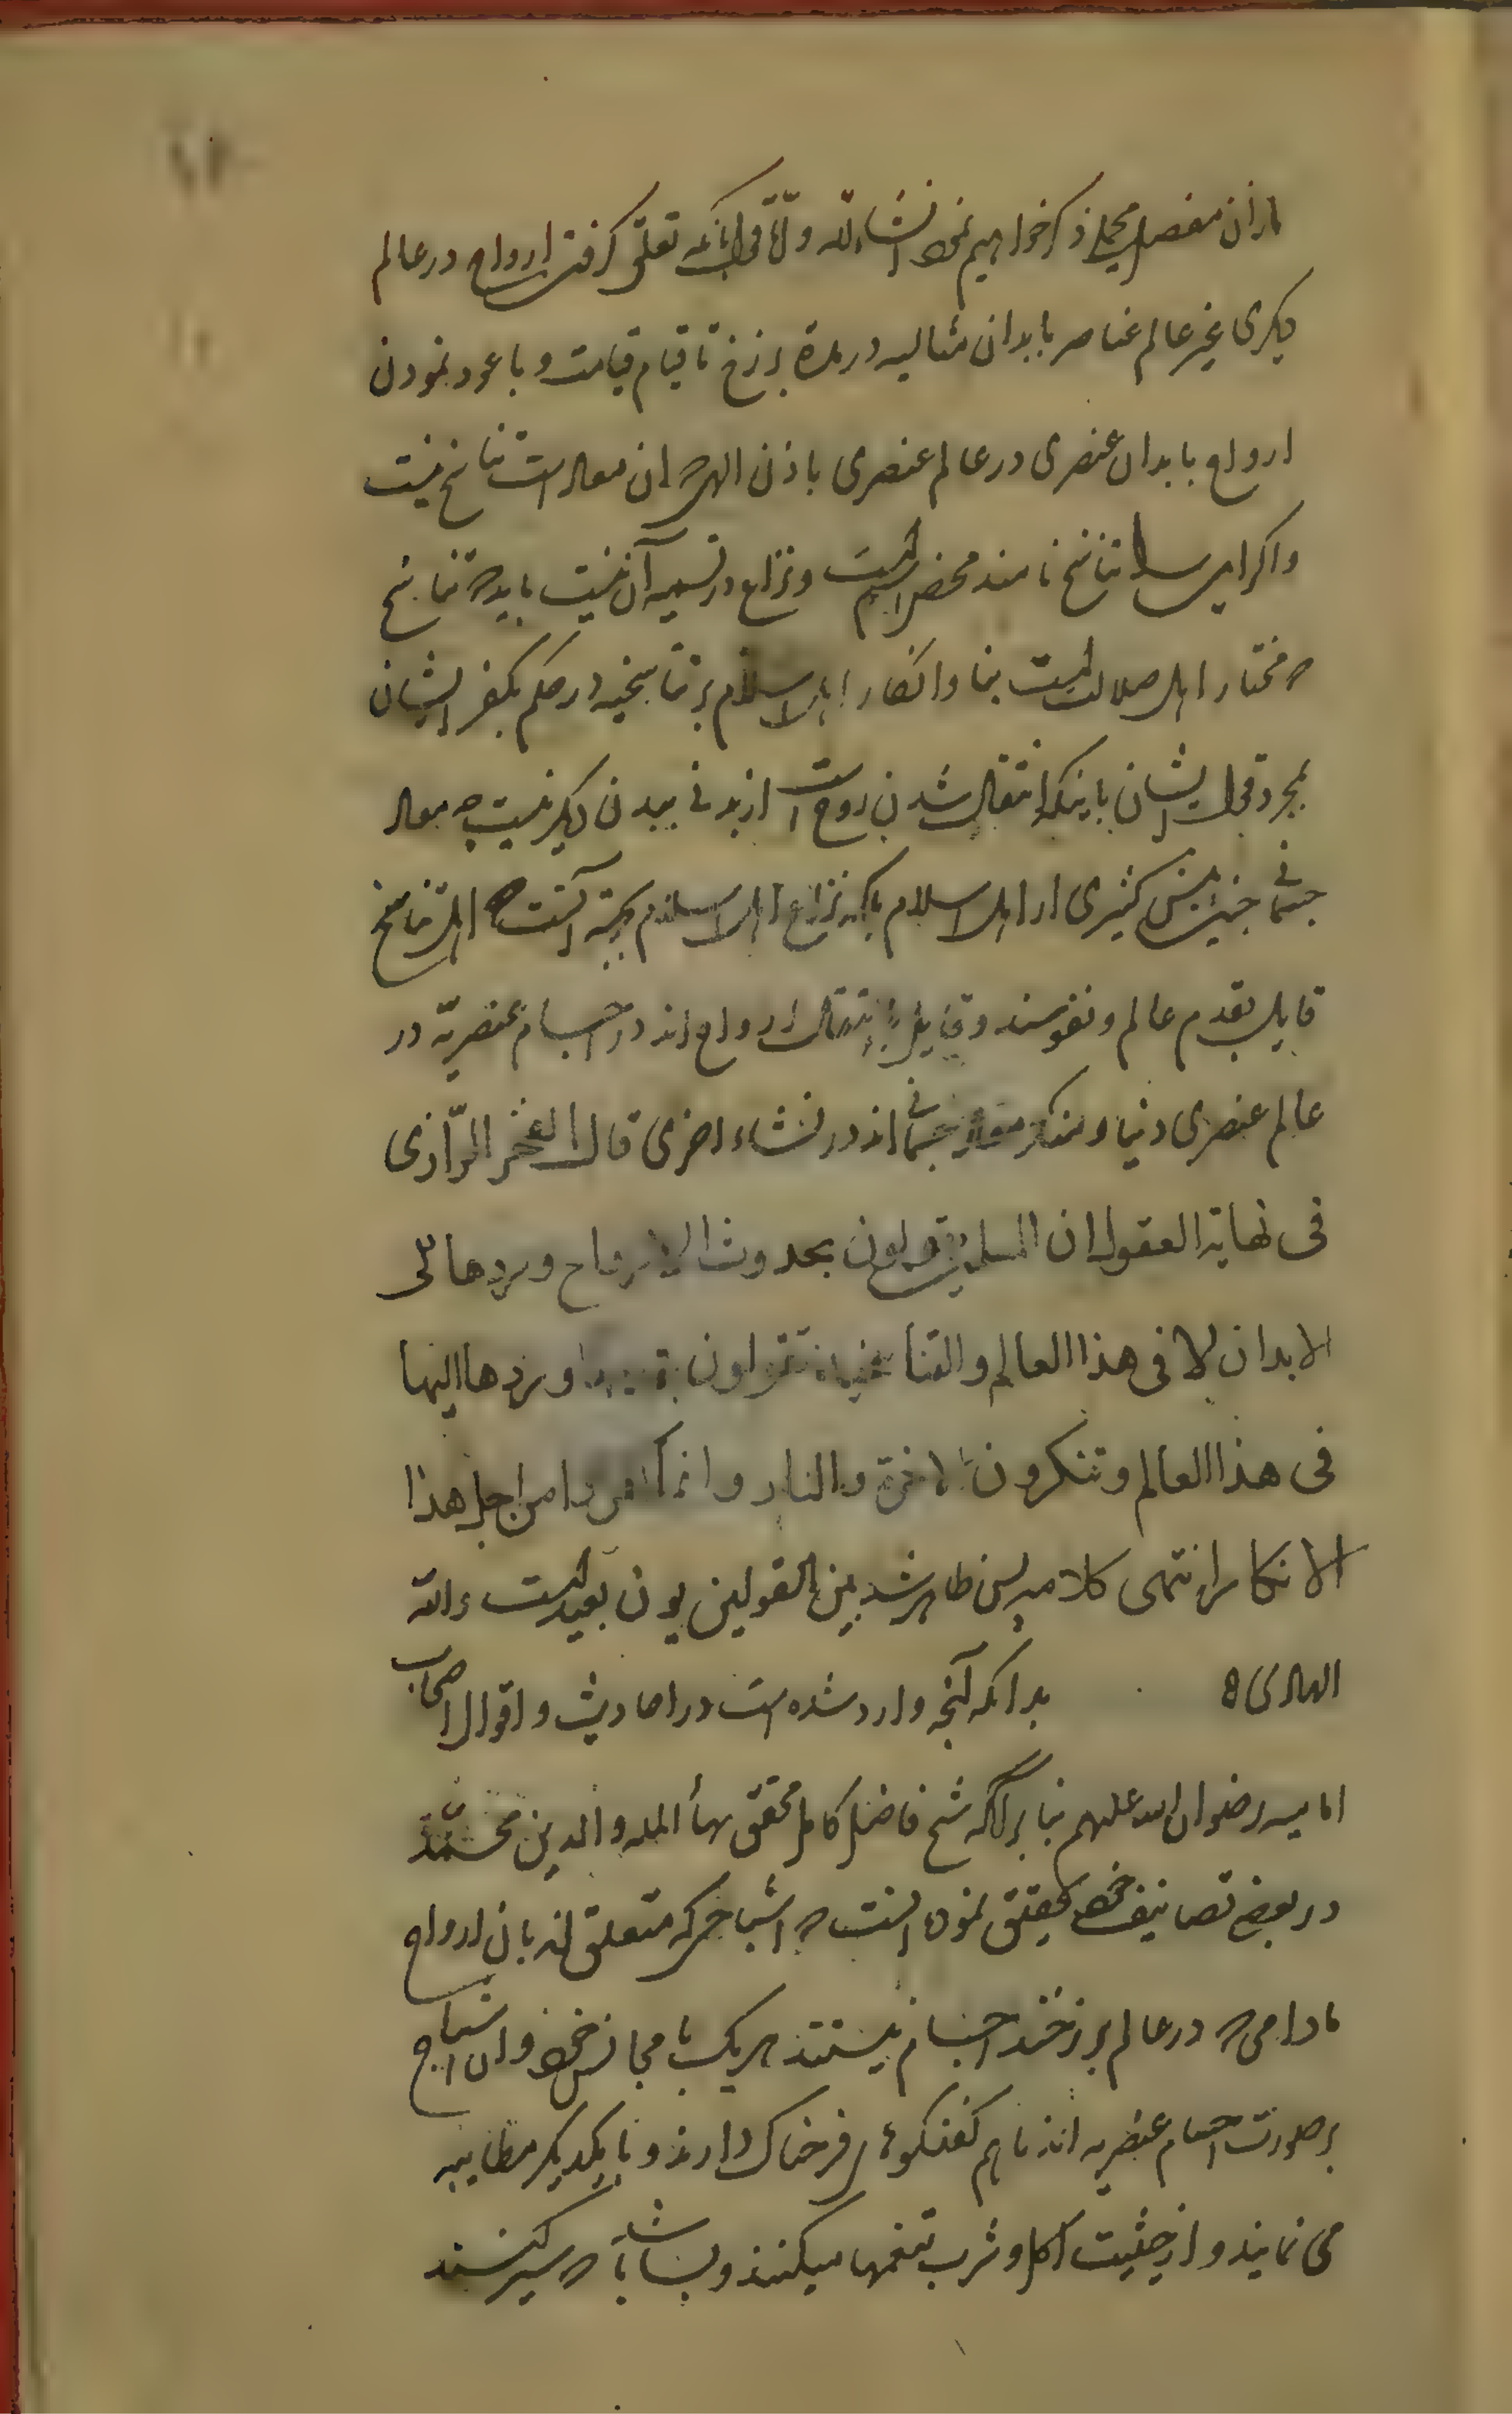 ازان مفصل مجمل ذکر خواهیم نمود انشاءالله و الّا قول بانکه تعلّق گرفتن ارواح در عالم
دیکری غیر عالم عناصر بابدان مثالیه در مدة برزخ تا قیام قیامت و باعود نمودن
ارواح بابدان عنصری در عالم عنصری باذن الهی که ان معاد است تناسخ نیست
واکر این را تناسخ نامند محض اسم است و نزاع در تسمیه آن نیست باید که تناسخ
که مختار اهل ضلالت است بنا وانکار اهل اسلام بر تناسخیه در حکم بکفر ایشان
بمجرد قول ایشان باینکه انتقال شدن روح است از بدنی ببدن دیکر نیست چه معاد
جسمانی چنین است پیش کثیری از اهل اسلام بلکه نزاع اهل اسلام بجهة آنست که اهل تناسخ
قایل بقدم عالم و نفوسند و قایل بانتقال ارواح اند در اجسام عنصریّه در
عالم عنصری دنیا و منکر معاد جسمانی اند در نشاء اخری قال الفخر الرّازی
فی نهایة العقول ان المسلمین یقولون بحدوث الارواح وردها الی
الابدان لا فی هذا العالم والتناسخیة تقولون بقدمها وردها الیها
فی هذا العالم وتنکرون الاخرة والنار وانما کفروا من اجل هذا
الانکار انتهی کلامه پس ظاهر شد بین القولین بون بعید است والله
الهادی ه بدانکه آنچه وارد شده است در احادیث و اقوال اصحاب
امامیه رضوان الله علیهم بنا بر آنکه شیخ فاضل کامل محقق بهاء المله والدین محمّد
در بعض تصانیف خود تحقیق نموده انست که اشباحی که متعلق اند بان ارواح
مادامی که در عالم برزخند اجسام نیستند هریک با مجانس خود و ان اشباح
بر صورت اجسام عنصریه اند باهم کفتکوهای فرحناک دارند و با یکدیکر مطایبه
می نمایند و از حیثیت اکل و شرب تنعمها میکنند و بسا باشد که سیر کنند